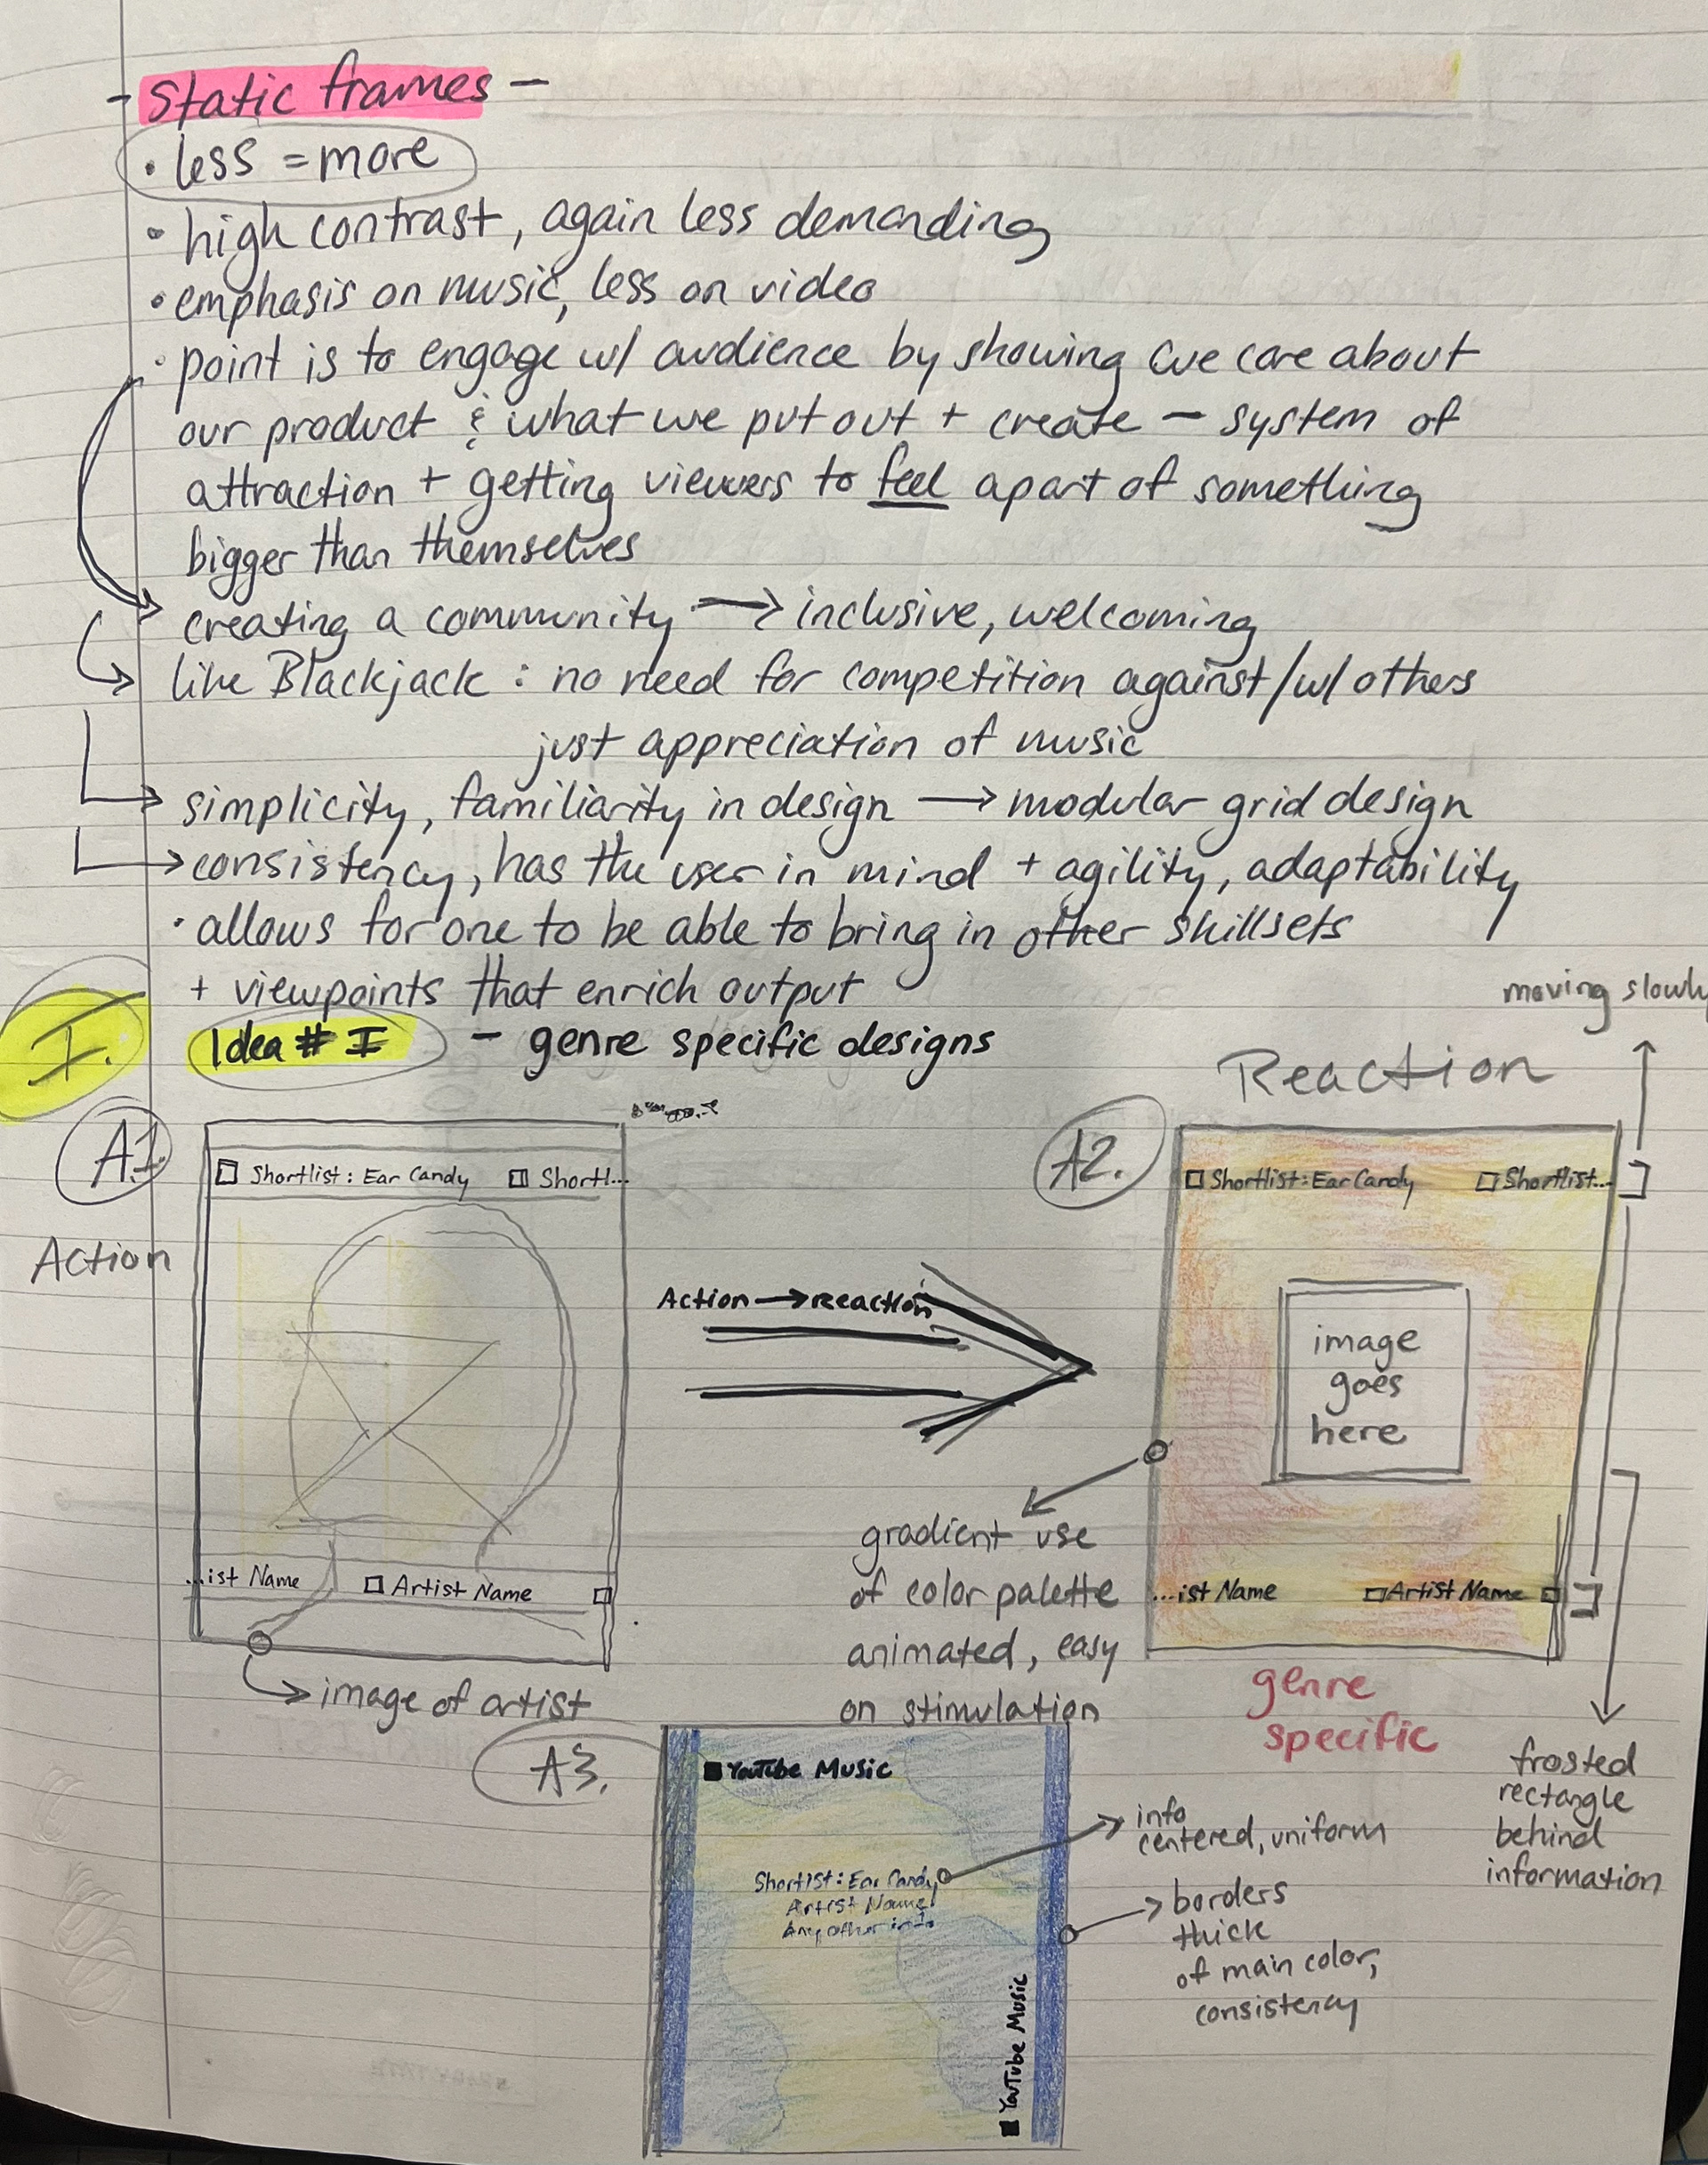 - Static frames -
• less = more
• high contrast, again less demanding
• emphasis on music, less on video
• point is to engage w/ audience by showing we care about
our product & what we put out + create — system of
attraction + getting viewers to feel apart of something
bigger than themselves
creating a community → inclusive, welcoming
like Blackjack : no need for competition against/w/ others
just appreciation of music
simplicity, familiarity in design → modular grid design
→ consistency, has the user in mind + agility, adaptability
• allows for one to be able to bring in other skillsets
+ viewpoints that enrich output
I.
Idea # I - genre specific designs
moving slowly
Reaction
A1.
Shortlist: Ear Candy
Shortl...
Action
...ist Name
Artist Name
image of artist
Action → reaction
A2.
Shortlist: Ear Candy
Shortlist...
image
goes
here
...ist Name
Artist Name
gradient use
of color palette
animated, easy
on stimulation
genre
specific
frosted
rectangle
behind
information
A3.
YouTube Music
Shortlist: Ear Candy
Artist Name
Any other info
YouTube Music
info
centered, uniform
borders
thick
of main color,
consistency